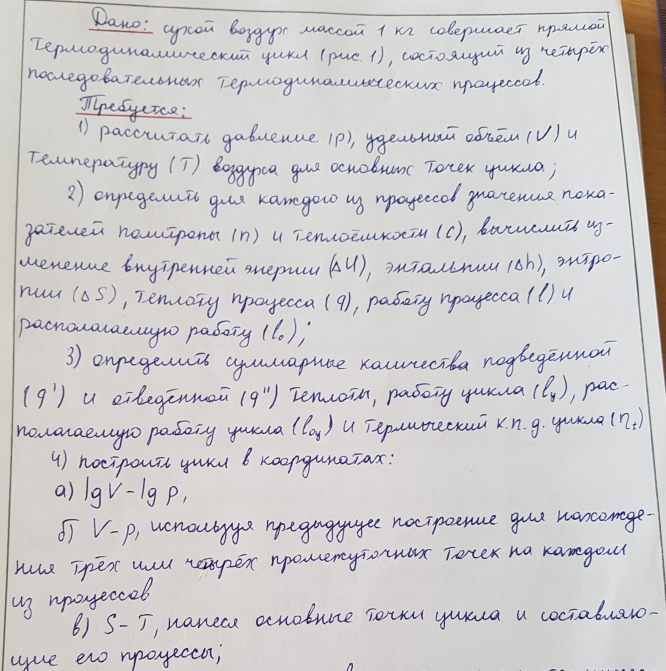 Дано: сухой воздух массой 1 кг совершает прямой
термодинамический цикл (рис. 1), состоящий из четырёх
последовательных термодинамических процессов.
Требуется:
1) рассчитать давление (p), удельный объём (V) и
температуру (T) воздуха для основных точек цикла;
2) определить для каждого из процессов значения пока-
зателей политропы (n) и теплоёмкости (c), вычислить из-
менение внутренней энергии (ΔU), энтальпии (Δh), энтро-
пии (ΔS), теплоту процесса (q), работу процесса (l) и
располагаемую работу (l₀);
3) определить суммарные количества подведённой
(q') и отведённой (q") теплоты, работу цикла (lц), рас-
полагаемую работу цикла (l₀ц) и термический к.п.д. цикла (ηt)
4) построить цикл в координатах:
а) lgV-lg p,
б) V-p, используя предыдущее построение для нахожде-
ния трёх или четырёх промежуточных точек на каждом
из процессов
в) S-T, нанеся основные точки цикла и составляю-
щие его процессы;